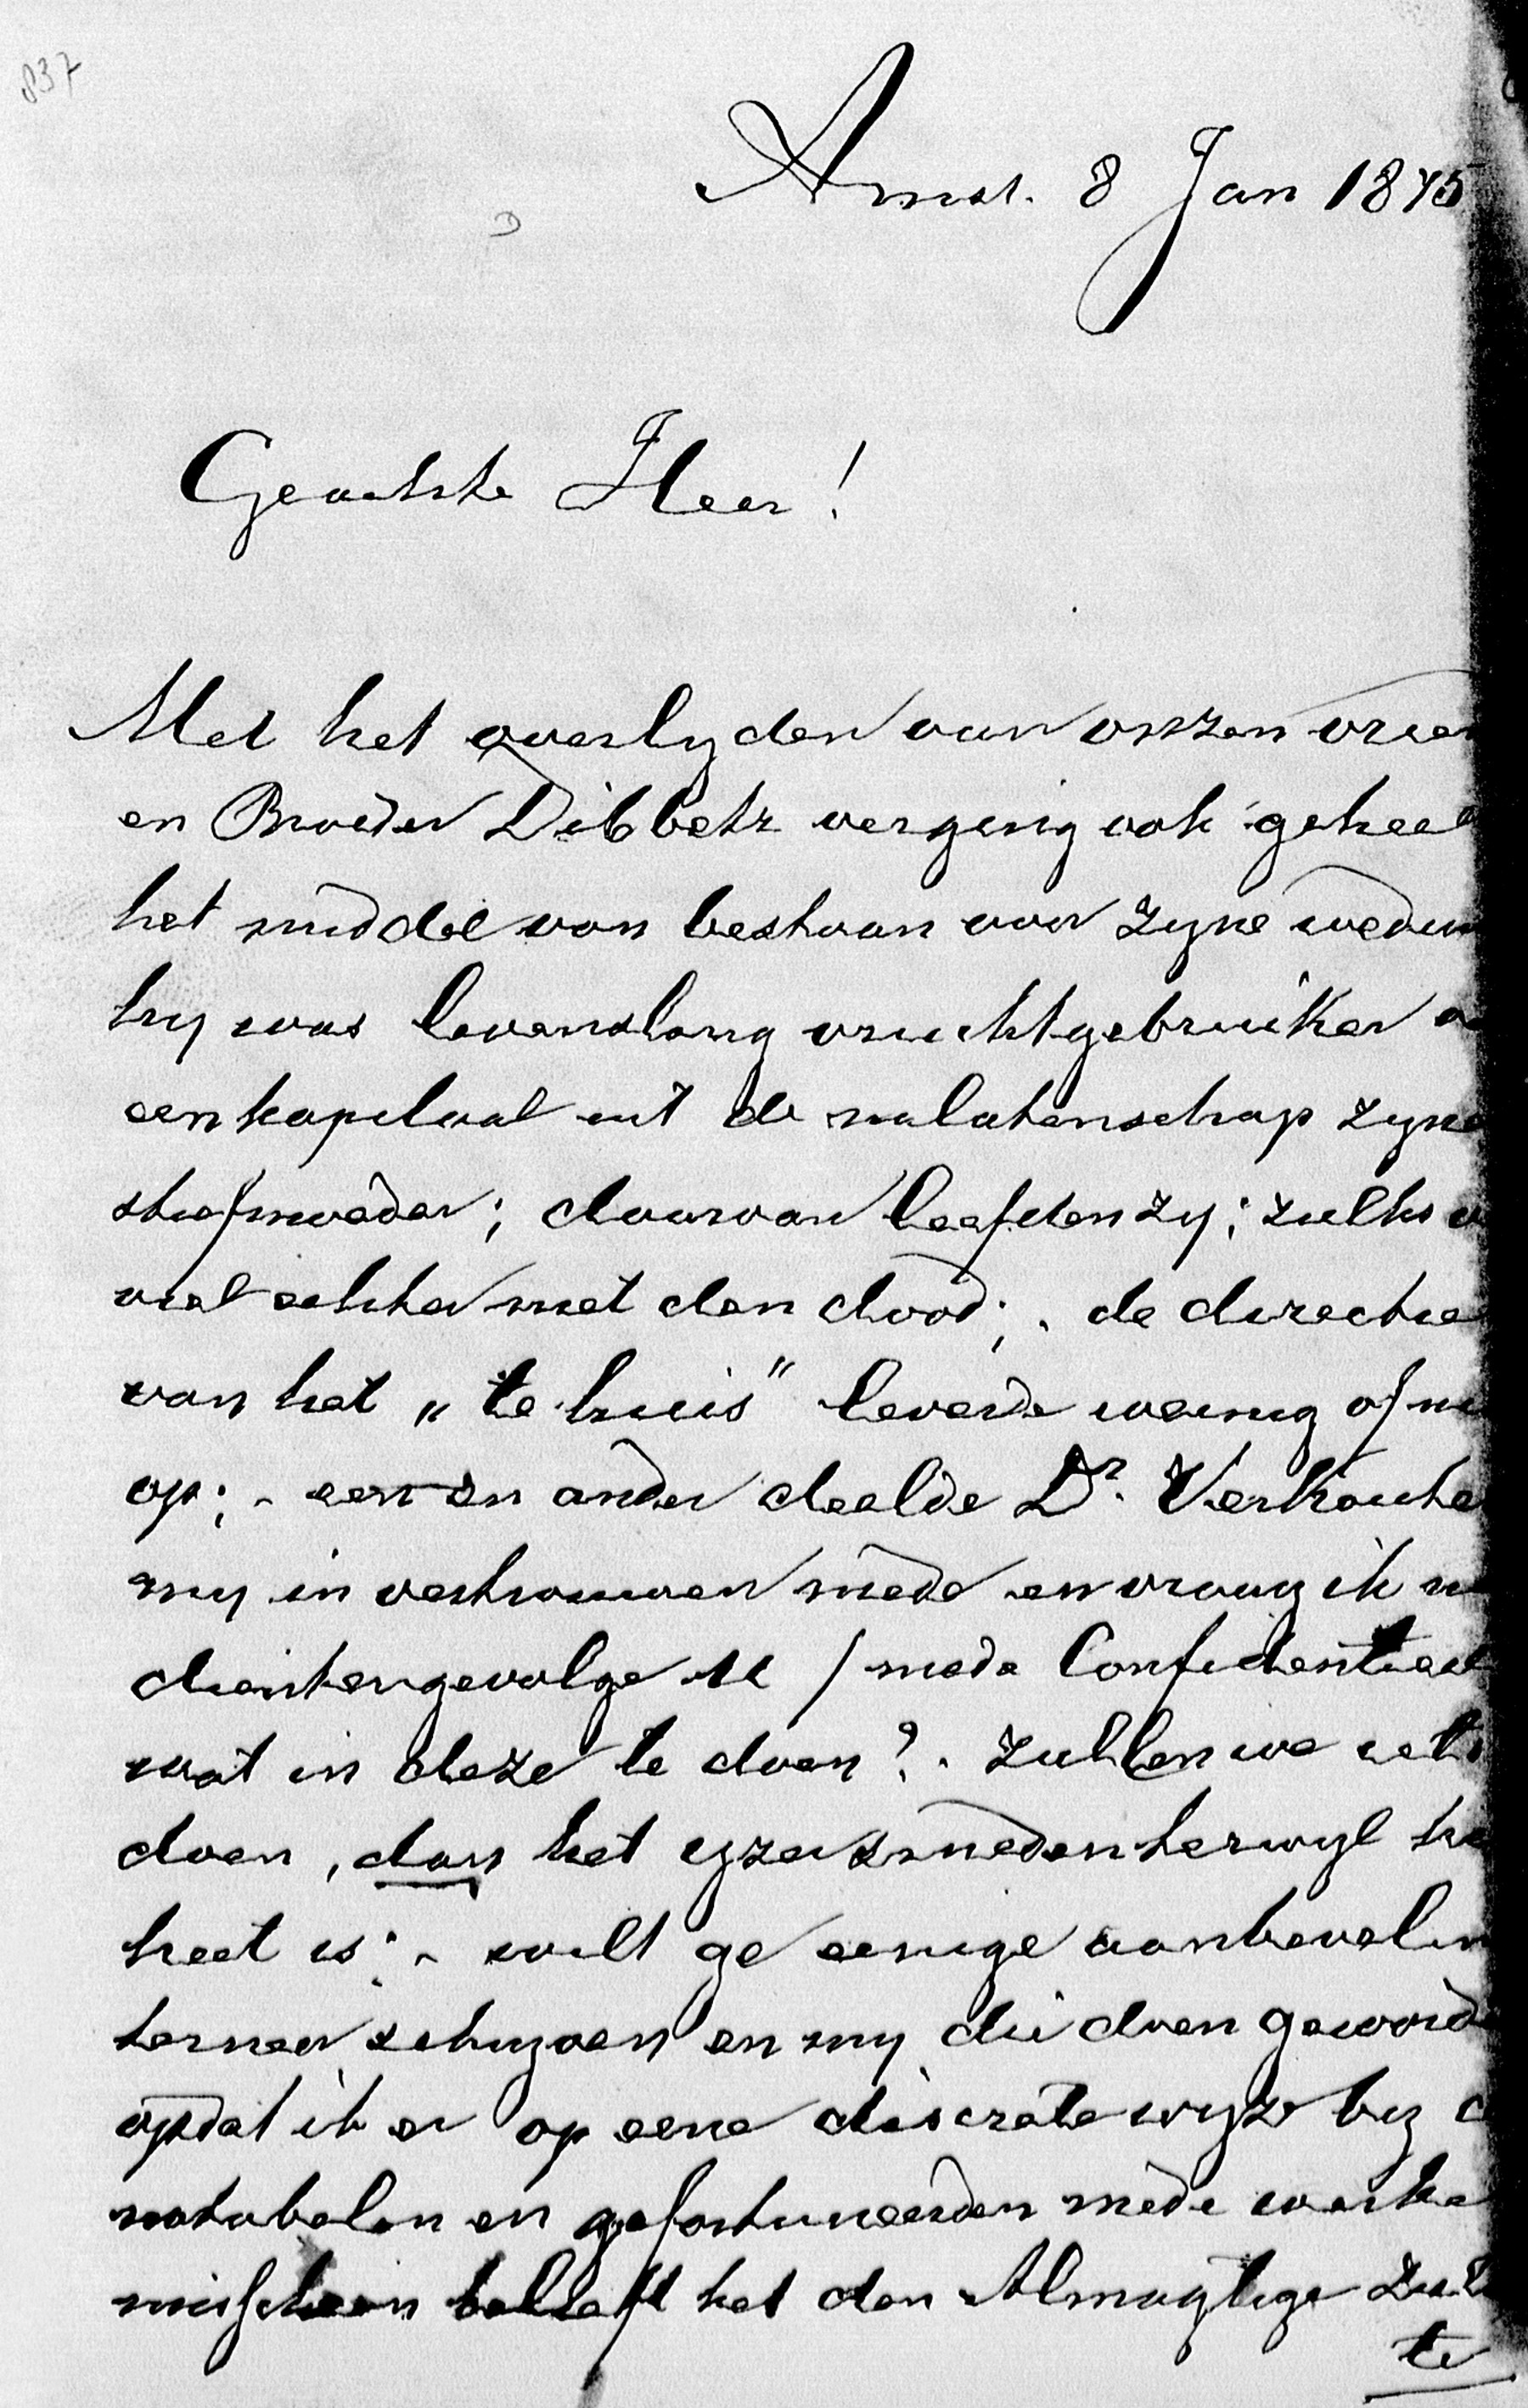 837
Amst. 8 Jan 1875
Geachte Heer!
Met het overlyden van onzen vrien
en Broeder Dibbetz verging ook geheel
het middel van bestaan voor zyne weduw
hy was levenslang vruchtgebruiker
een kapitaal uit de nalatenschap zyne
stiefmoeder; daarvan leefden zy; zulks
viel echter met den dood; - de directie
van het „te huis" leverde weinig of ni
op; - een en ander deelde Dr. Verkoute
my in vertrouwen mede en vraag ik
dientengevolge U / mede Confidentieel
wat in deze te doen? - Zullen we iets
doen, dan het yzer smeden terwyl he
heet is; - wilt ge eenige aanbevelin
terneer schryven en my die doen geword
opdat ik er op eene discrete wyze by
notabelen en gefortuneerden mede werke
misschien belieft het den Almagtige
te